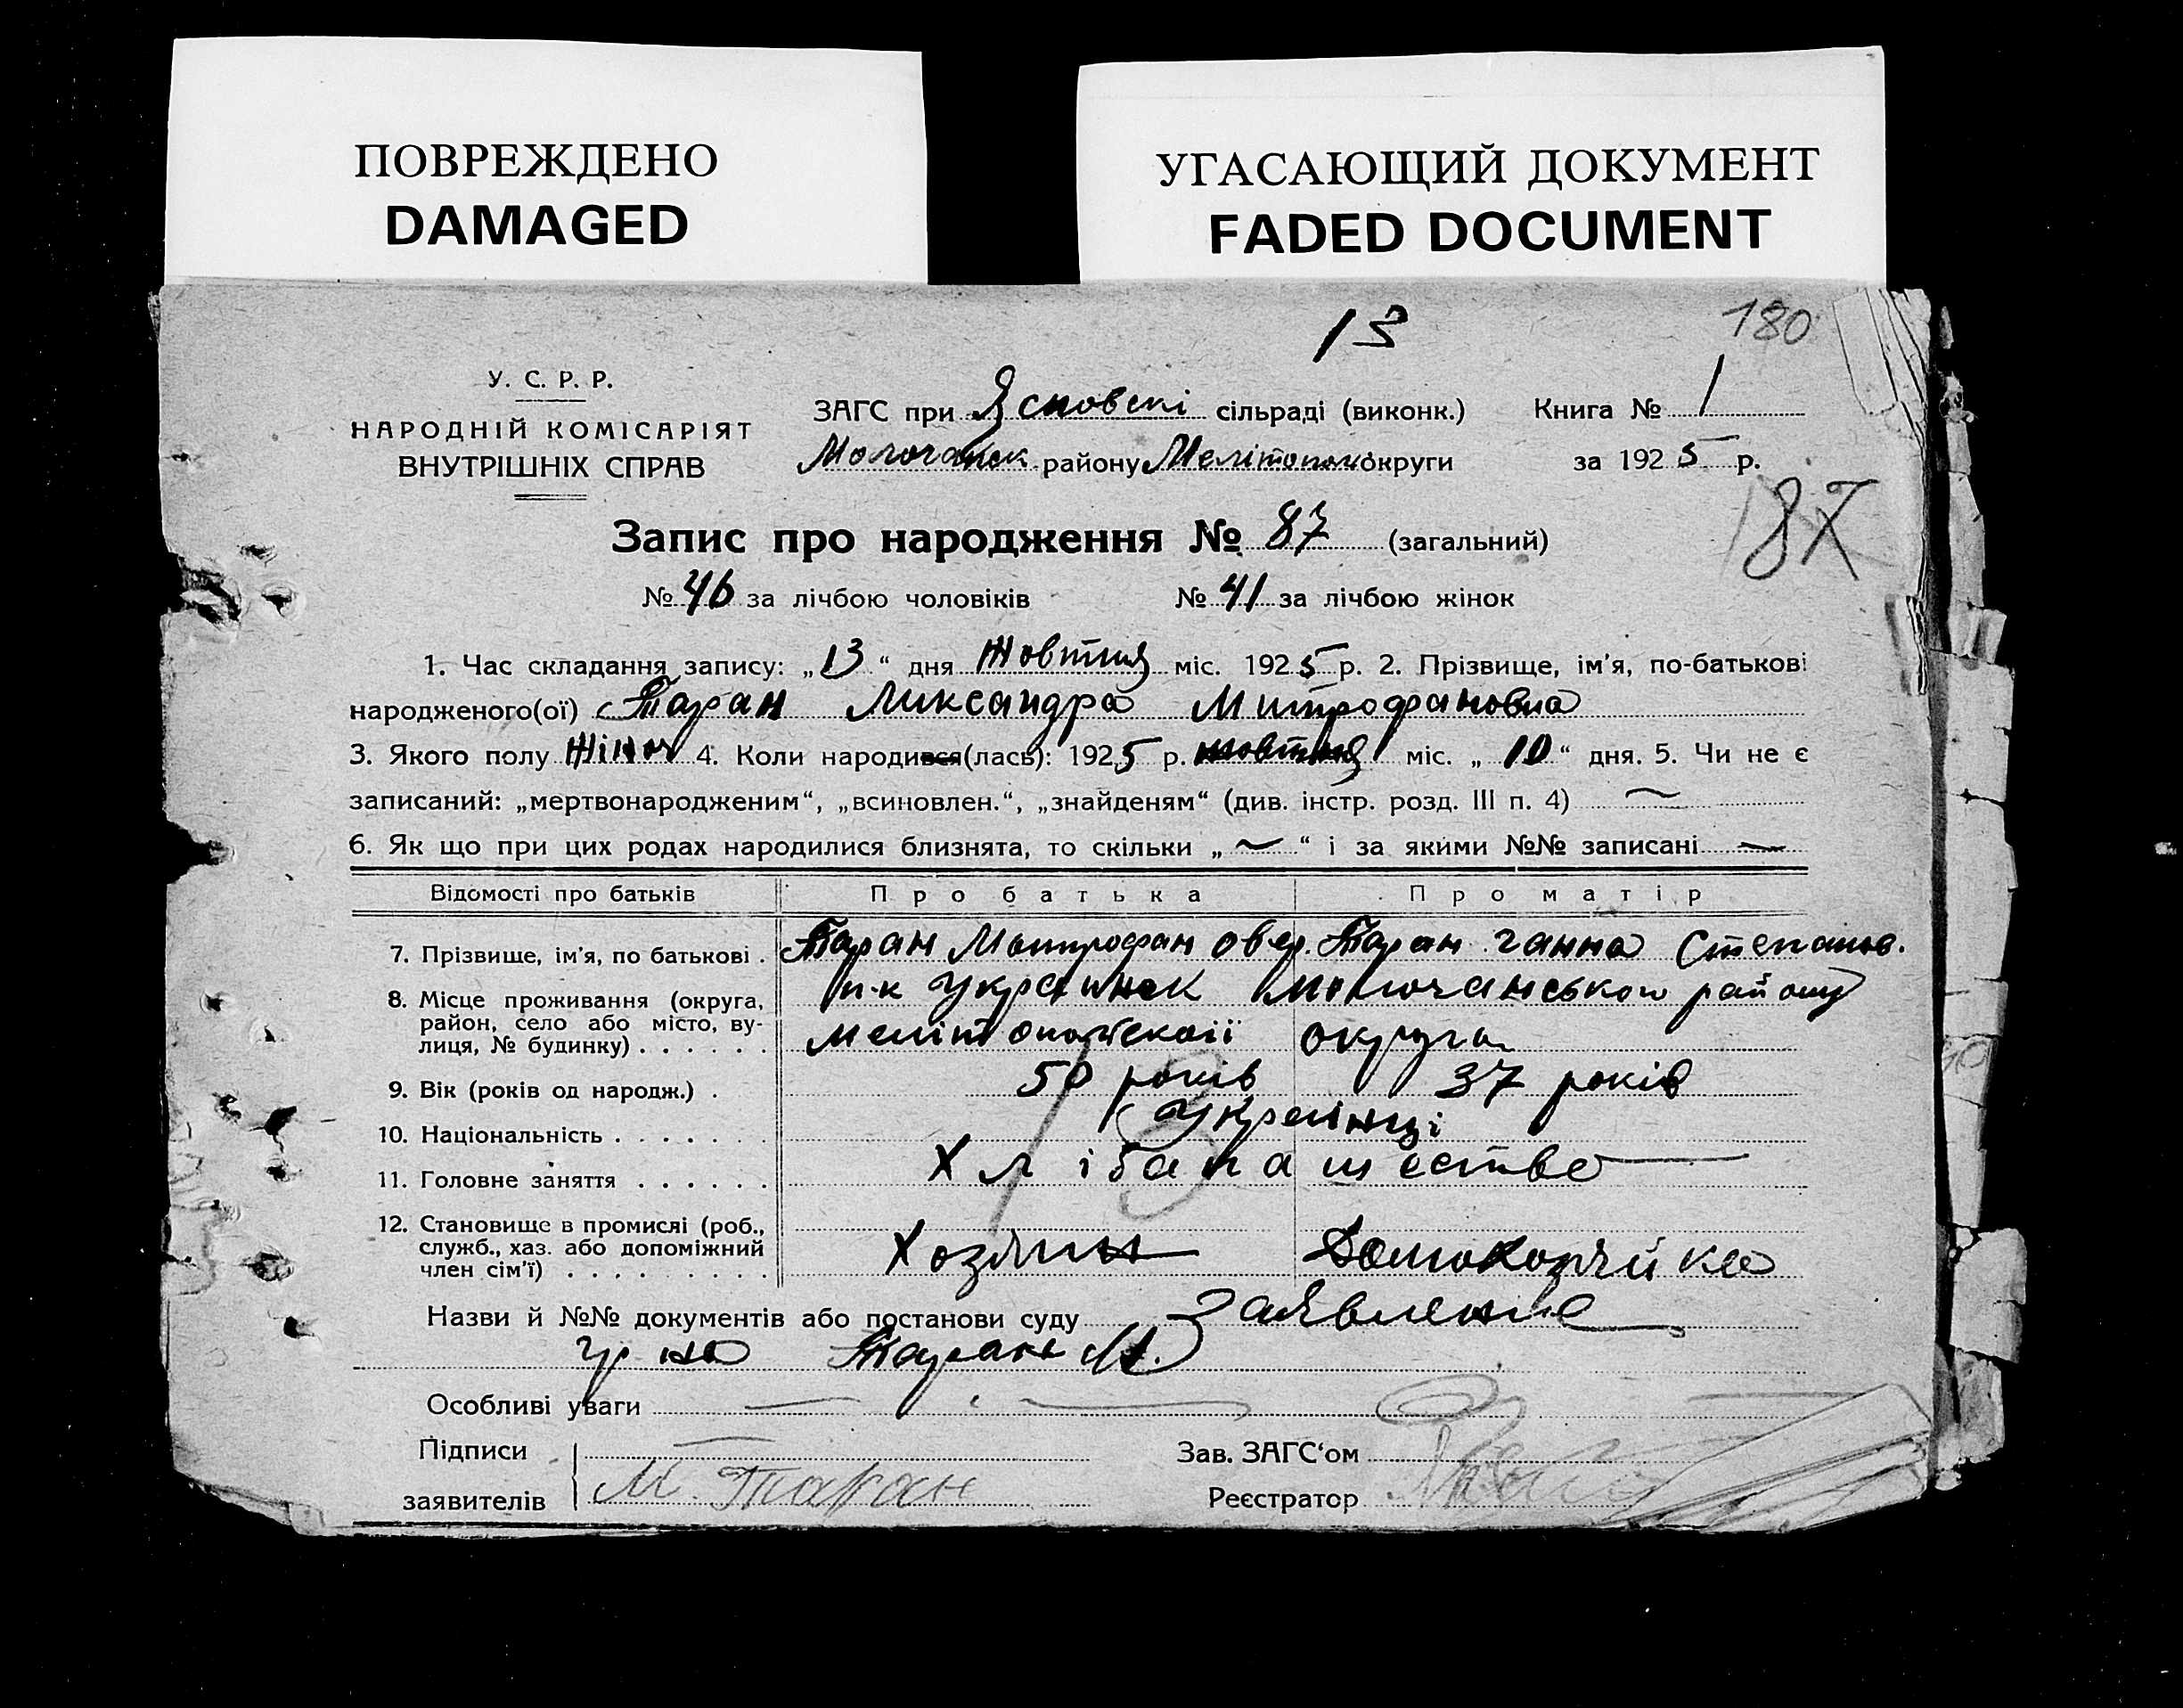 ПОВРЕЖДЕНО
DAMAGED
УГАСАЮЩИЙ ДОКУМЕНТ
FADED DOCUMENT
13
180
У. С. Р. Р.
НАРОДНІЙ КОМІСАРІЯТ
ВНУТРІШНІХ СПРАВ
ЗАГС при Ясновскі сільраді (виконк.) Книга № 1
Молочанск району Мелітопол округи за 1925 р.
87
Запис про народження № 87 (загальний)
№ 46 за лічбою чоловіків № 41 за лічбою жінок
1. Час складання запису: „13“ дня Жовтня міс. 1925 р. 2. Прізвище, ім'я, по-батькові
народженого(ої) Таран Ликсандра Митрофановна
3. Якого полу Жіноч 4. Коли народився(лась): 1925 р. жовтня міс. „10“ дня. 5. Чи не є
записаний: „мертвонародженим“, „всиновлен.“, „знайденям“ (див. інстр. розд. III п. 4)
6. Як що при цих родах народилися близнята, то скільки „ “ і за якими №№ записані
Відомості про батьків Про батька Про матір
7. Прізвище, ім'я, по батькові . Таран Митрофан Таран Ганна Степанов.
8. Місце проживання (округа, район, село або місто, вулиця, № будинку) . . . . . .
п-к Українск Молочанського району
мелітопольскоії округи
9. Вік (років од народж.) . 50 років 37 років
10. Національність . . . . . . . Українці
11. Головне заняття . . . . . . Хлібапашество
12. Становище в промислі (роб., служб., хаз. або допоміжний член сім'ї) . . . . . . . . . Хозяин Домохозяйка
Назви й №№ документів або постанови суду Заявление
гр-на Таран М.
Особливі уваги
Підписи
заявителів М. Таран
Зав. ЗАГС'ом
Реєстратор